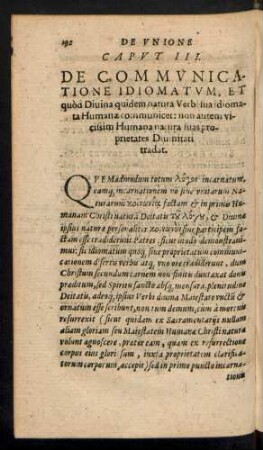 192 DE VNIONE
CAPVT III.
DE COMMVNICA-
TIONE IDIOMATVM, ET
quòd Diuina quidem natura Verbi sua idioma-
ta Humanæ communicet: non autem vi-
cissim Humana natura suas pro-
prietates Diuinitati
tradat.
QVEMadmodum totum λόγον incarnatum,
eamq́; incarnationem
Naturarum factam & in primis Hu-
manam Christi naturā Deitatis τȣ͂ λόγου, & Diuinæ
ipsius naturæ personalis participem fa-
ctam esse tradiderunt Patres, sicut modò demonstraui-
mus: sic idiomatum quoq́;, siue proprietatum communi-
cationem diserte verbis atq; vno ore tradiderunt, dum
Christum secundum carnem non finitis duntaxat donis
præditum, sed Spiritu sancto absq́; mensura, plenitudine
Deitatis, adeoq́; ipsius Verbi diuina Maiestate vnctū &
ornatum esse scribunt, non tum demum, cùm à mortuis
resurrexit (sicut quidem ex Sacramentarijs nullam
aliam gloriam seu Maiestatem Humanæ Christi naturæ
volunt agnoscere, præter eam, quam ex resurrectione
corpus eius gloriosum, iuxta proprietatem clarifica-
torum corporum, accepit) sed in primo puncto incarna-
tionis